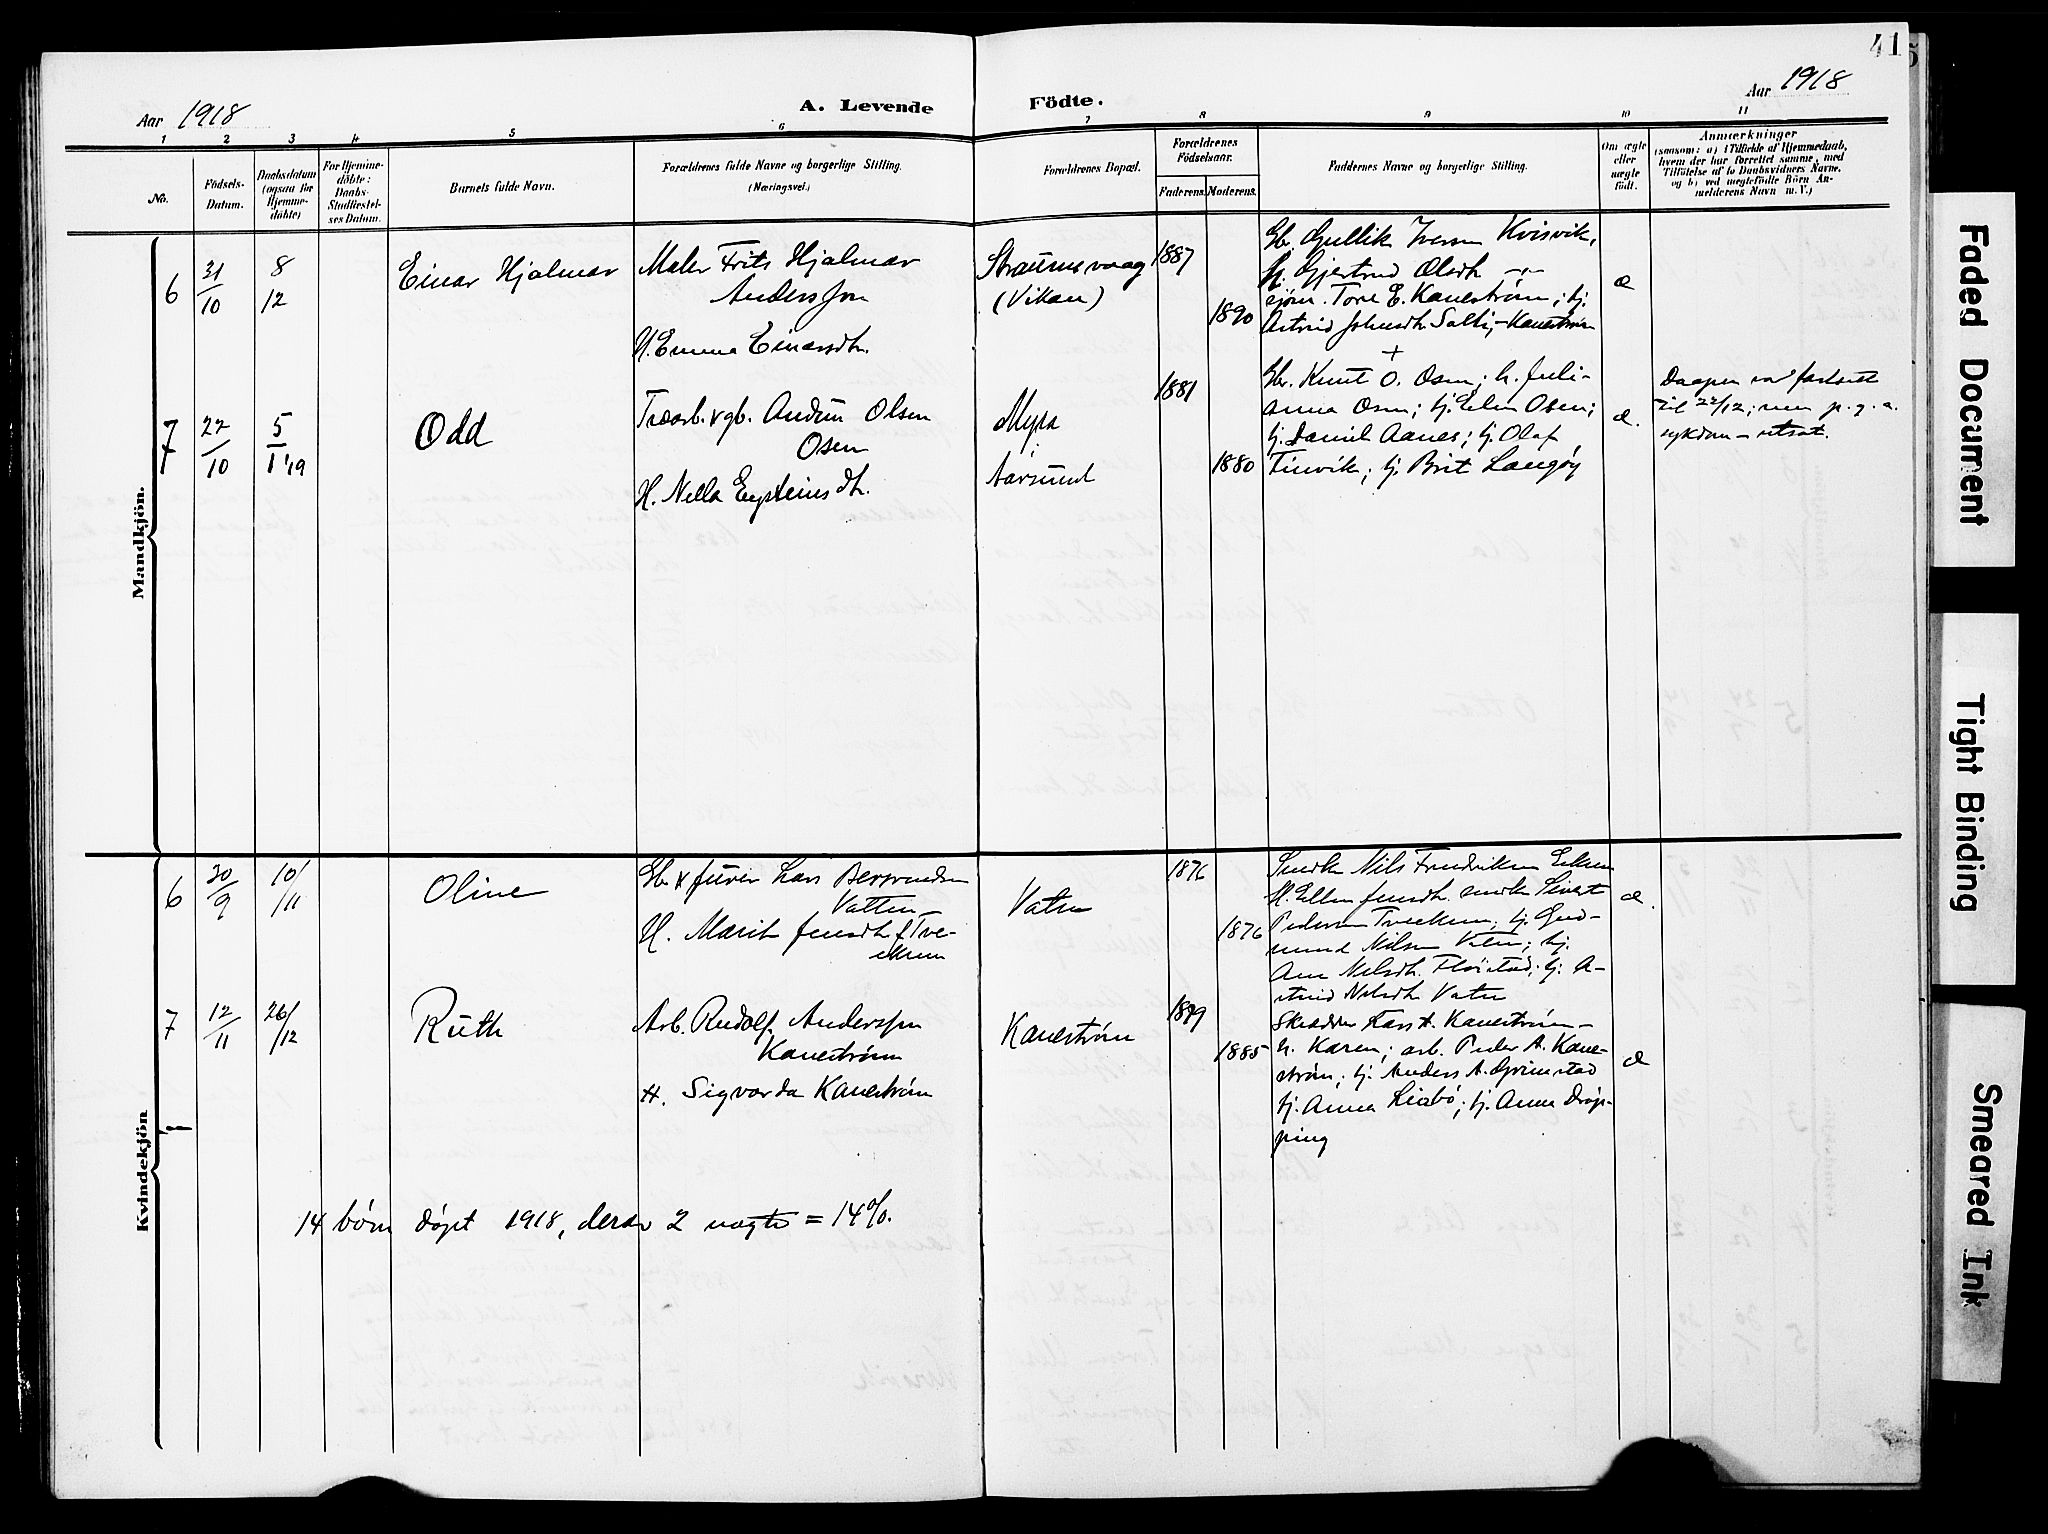 41
Aar 1918
A. Levende Födte.
Aar 1918
1 2 3 4 5 6 7 8 9 10 11
No.
Födsels-
Datum.
Daabsdatum
(ogsaa for
Hjemme-
döbte)
For Hjemme-
döbte:
Daabs-
Stadfæstel-
ses Datum.
Barnets fulde Navn.
Forældrenes fulde Navne og borgerlige Stilling.
(Næringsvei.)
Forældrenes Bopæl.
Forældrenes
Födselsaar.
Faderens. Moderens.
Faddernes Navne og borgerlige Stilling.
Om ægte
eller
uægte
födt.
Anmærkninger
(saasom: a) i Tilfælde af Hjemmedaab,
hvem der har forrettet samme, med
Tilföielse af to Daabsvidners Navne,
og b) ved uægtefödte Börn An-
melderens Navn m. V.)
Mandkjön.
6
31/10
8/12
Einar Hjalmar
Maler Frits Hjalmar
Andersson
H. Emma Einarsdtr.
Straumsvaag
(Vikan)
1887
1890
Gb. Gullik Iversen Kvisvik,
h. Gjertrud Olsdtr —"—
sjøm. Tore E. Kanestrøm; tj.
Astrid Johnsdtr. Solli, - Kanestrøm
æ
7
22/10
5/1 '19
Odd
Træarb. & gb. Andrin Olsen
Osen
H. Nella Eysteinsdtr.
Myra
Aarsund
1881
1880
+
Gbr. Knut O. Osen; h. Juli-
anna Osen; tj. Elen Osen;
tj. Daniel Aanes; tj. Olaf
Tinvik; tj. Brit Langøy
æ.
Daapen var fastsat
til 22/12; men p. g. a.
sykdom – utsat.
Kvindekjön
6
30/9
10/11
Oline
Gb & furer Lars Bersvendsen
Vatten –
H. Marit Jensdtr f. Tve-
ekrem
Vatn
1876
1876
Smed Nils Fredriksen
H. Ellen Jensdtr. Sivert
Pedersen Tveekrem; tj. Gud-
mund Nilsen Vatn; tj.
Ane Nilsdtr. Fløistad; tj. A-
strid Nilsdtr Vatn
æ.
7
12/11
26/12
Ruth
Arb. Rudolf Anderssen
Kanestrøm
H. Sigvarda Kanestrøm
Kanestrøm
1889
1885
Skrædder Lars A. Kanestrøm –
h. Karen; arb. Peder A. Kane-
strøm; tj. Anders A. Grimstad
tj. Anna Liabø; tj. Anna Drøp-
ping
æ
14 børn døpt 1918, derav 2 uægte = 14%.
Faded Document
Tight Binding
Smeared Ink